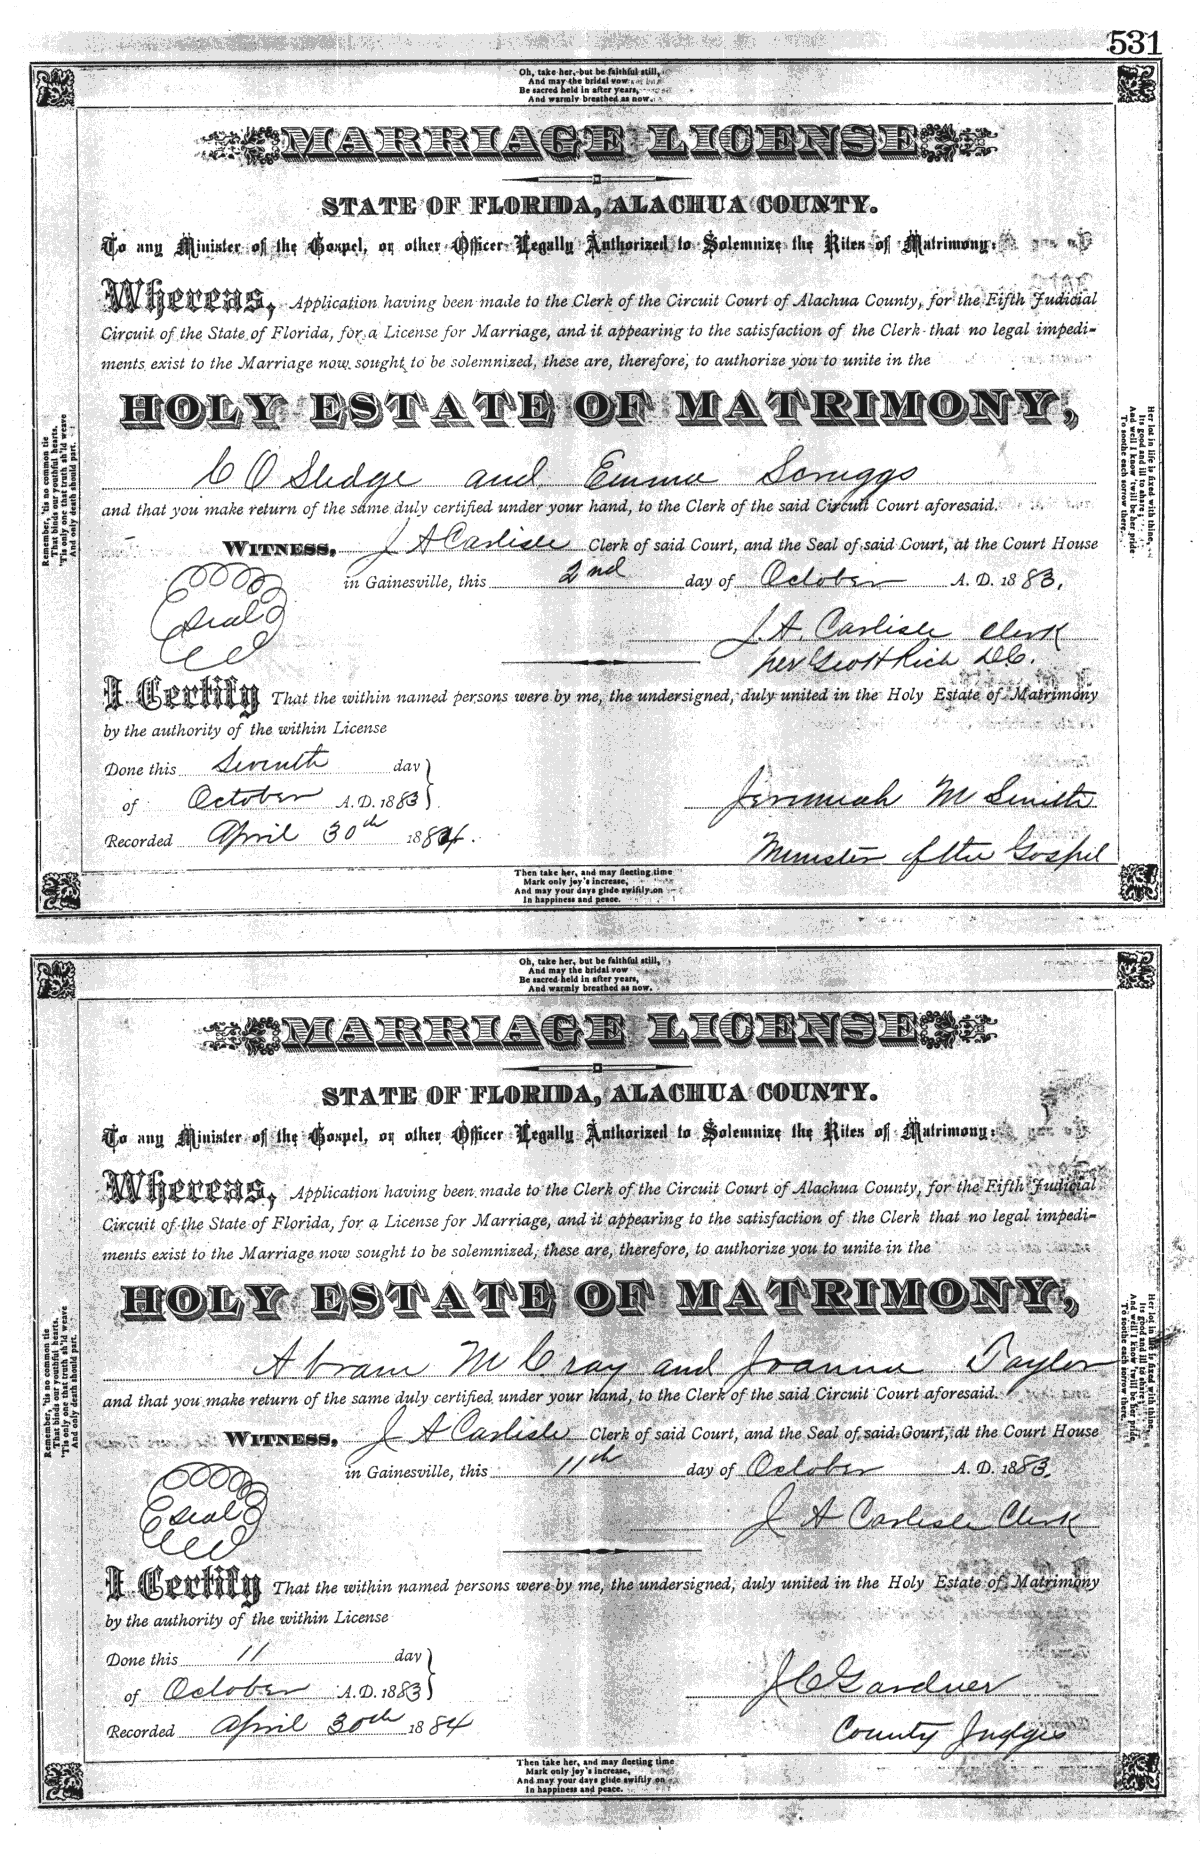 531
Oh, take her, but be faithful still,
And may the bridal vow
Be sacred held in after years,
And warmly breathed as now.
MARRIAGE LICENSE
STATE OF FLORIDA, ALACHUA COUNTY.
To any Minister of the Gospel, or other Officer Legally Authorized to Solemnize the Rites of Matrimony:
Whereas, Application having been made to the Clerk of the Circuit Court of Alachua County, for the Fifth Judicial
Circuit of the State of Florida, for a License for Marriage, and it appearing to the satisfaction of the Clerk that no legal impedi-
ments exist to the Marriage now sought to be solemnized, these are, therefore, to authorize you to unite in the
HOLY ESTATE OF MATRIMONY,
C O Sledge and Emma Scruggs
and that you make return of the same duly certified under your hand, to the Clerk of the said Circuit Court aforesaid.
WITNESS, J A Carlisle Clerk of said Court, and the Seal of said Court, at the Court House
in Gainesville, this 2nd day of October A. D. 1883.
Seal
J. A. Carlisle Clerk
per Geo H Rich D.C.
I Certify That the within named persons were by me, the undersigned, duly united in the Holy Estate of Matrimony
by the authority of the within License
Done this Seventh day
of October A. D. 1883
Jeremiah M Smith
Recorded April 30th 1884.
Minister of the Gospel
Remember, 'tis no common tie
That binds our youthful hearts,
'Tis only one that truth sh'ld weave
And only death should part.
Her lot in life is fixed with thine,
Its good and ill to share;
And well I know 'twill be her pride
To soothe each sorrow there.
Then take her, and may fleeting time
Mark only joy's increase,
And may your days glide swiftly on
In happiness and peace.
Oh, take her, but be faithful still,
And may the bridal vow
Be sacred held in after years,
And warmly breathed as now.
MARRIAGE LICENSE
STATE OF FLORIDA, ALACHUA COUNTY.
To any Minister of the Gospel, or other Officer Legally Authorized to Solemnize the Rites of Matrimony:
Whereas, Application having been made to the Clerk of the Circuit Court of Alachua County, for the Fifth Judicial
Circuit of the State of Florida, for a License for Marriage, and it appearing to the satisfaction of the Clerk that no legal impedi-
ments exist to the Marriage now sought to be solemnized, these are, therefore, to authorize you to unite in the
HOLY ESTATE OF MATRIMONY,
Abram McCray and Joanna Taylor
and that you make return of the same duly certified under your hand, to the Clerk of the said Circuit Court aforesaid.
WITNESS, J A Carlisle Clerk of said Court, and the Seal of said Court, at the Court House
in Gainesville, this 11th day of October A. D. 1883.
Seal
J A Carlisle Clerk
I Certify That the within named persons were by me, the undersigned, duly united in the Holy Estate of Matrimony
by the authority of the within License
Done this 11 day
of October A. D. 1883
J C Gardner
Recorded April 30th 1884
County Judge
Remember, 'tis no common tie
That binds our youthful hearts,
'Tis only one that truth sh'ld weave
And only death should part.
Her lot in life is fixed with thine,
Its good and ill to share;
And well I know 'twill be her pride
To soothe each sorrow there.
Then take her, and may fleeting time
Mark only joy's increase,
And may your days glide swiftly on
In happiness and peace.